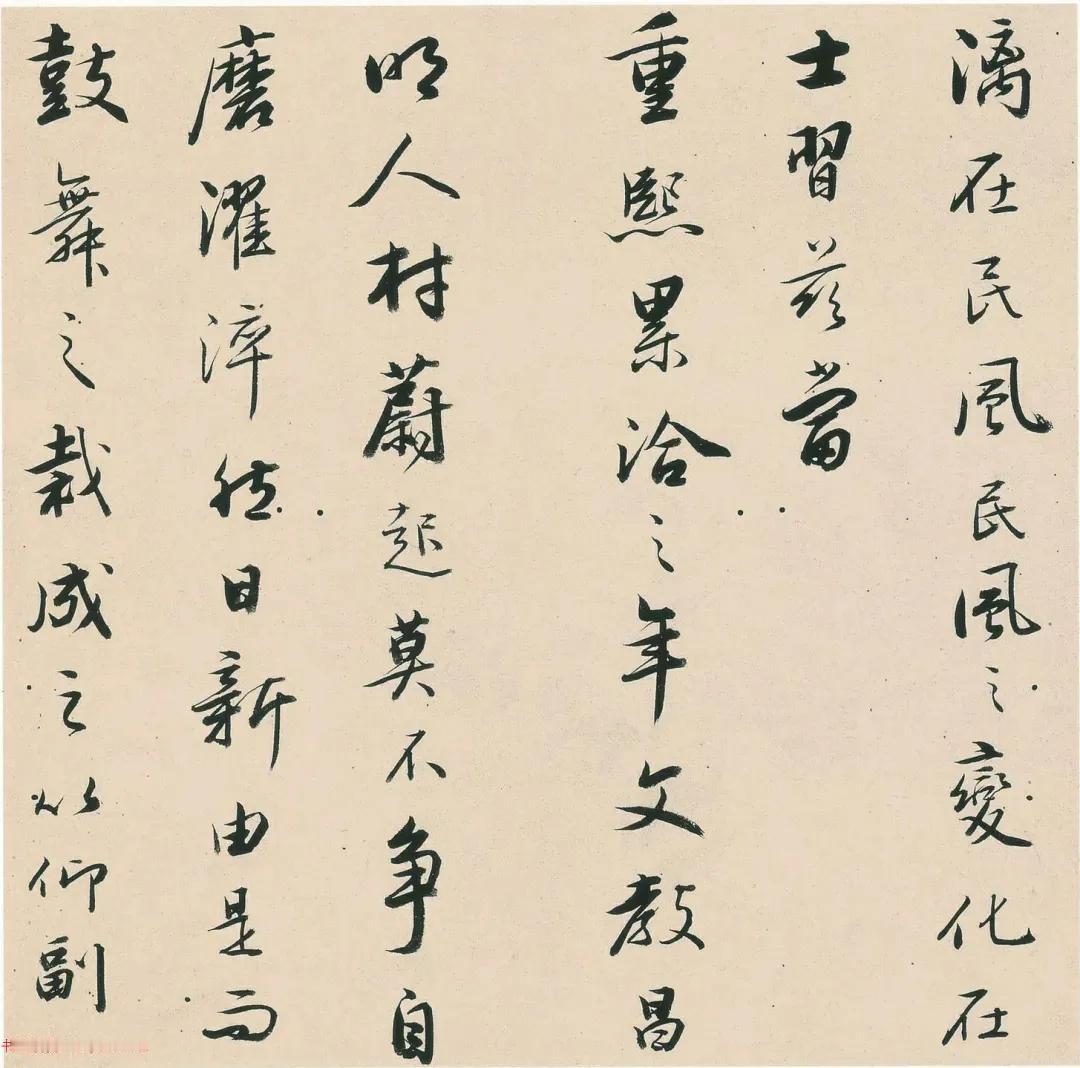 漓在民風民風之變化在
士習茲當
重熙累洽之年文教昌
明人材蔚起莫不争自
磨濯淬然日新由是而
鼓舞之栽成之以仰副